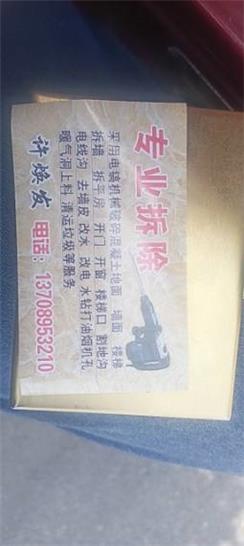 专业拆除
采用电镐机械破碎混凝土地面 墙面 楼梯
拆墙 拆平房 开门 开窗 楼梯口 割地沟
电线沟 去墙皮 改水 改电 水钻打油烟机孔
暖气洞上料 清运垃圾等服务
许焕发 电话:13708953210